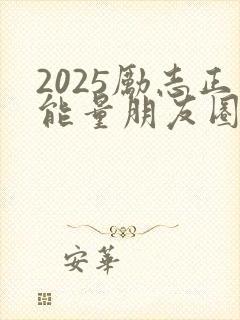 2025励志正
能量朋友圈
安华